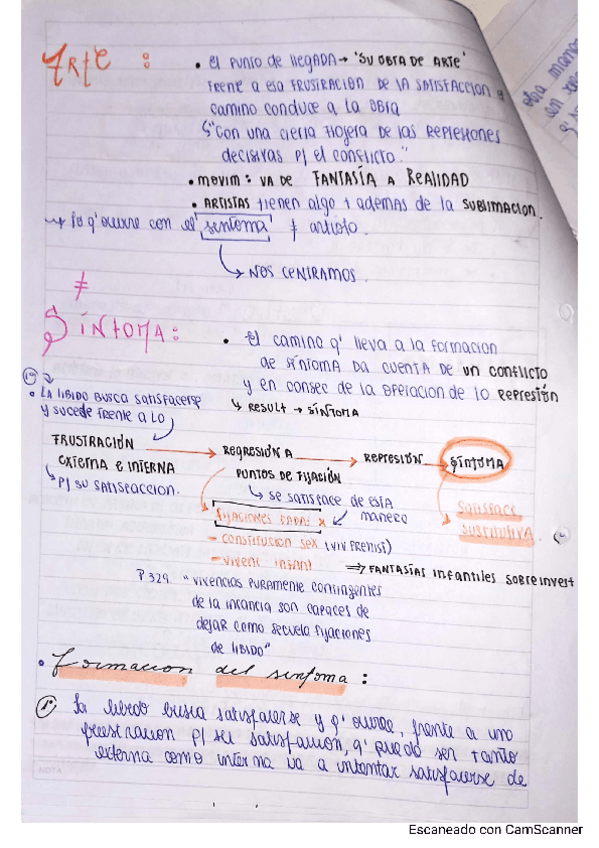 ARTE :
• El PUNTO DE llEGADA → 'SU OBRA DE ARTE'
FRENTE A ESA FRUSTRACION DE LA SATISFACCION y
CAMINO CONDUCE A LA OBRA
↳ "CON UNA CIERTA FLOJERA DE LAS REPRESIONES
DECISIVAS P/ El CONFLICTO."
• MOVIM: VA DE FANTASÍA A REALIDAD
• ARTISTAS TIENEN AlGO + ADEMAS DE LA SUBLIMACION.
→ lo q' ocurre con el síntoma ≠ artista.
↳ NOS CENTRAMOS.
≠
SÍNTOMA:
• El CAMINO q' llEVA A LA FORMACION
DE SÍNTOMA DA CUENTA DE UN CONFLICTO
y EN CONSEC DE LA OPERACION DE LO REPRESIÓN
↳ RESULT → SÍNTOMA
1º
• LA LIBIDO BUSCA SATISFACERSE
y SUCEDE FRENTE A LO
FRUSTRACIÓN → REGRESIÓN A → REPRESIÓN → SÍNTOMA
EXTERNA E INTERNA
PUNTOS DE FIJACIÓN
↳ P/ SU SATISFACCION.
↳ SE SATISFACE DE ESTA
MANERA
SATISFACC
SUSTITUTIVA.
FIJACIONES DADAS X
- CONSTITUCION SEX (VIV PREHIST)
- VIVENC INFANT
⇒ FANTASÍAS INFANTILES SOBREINVEST
P 329 "VIVENCIAS PURAMENTE CONTINGENTES
DE LA INFANCIA SON CAPACES DE
DEJAR COMO SECUELA FIJACIONES
DE LIBIDO"
• Formacion del sintoma :
1º La libido busca satisfacerse y q' ocurre, frente a una
frustracion p/ su satisfaccion, q' puede ser tanto
externa como interna va a intentar satisfacerse de
NOTA
Escaneado con CamScanner